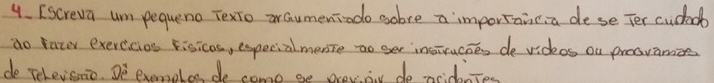 4- Escreva um pequeno texto argumentado sobre a importância de se ter cuidado
ao fazer exercícios físicos, especialmente ao ser instruções de vídeos ou programas
de televisão. Dê exemplos de como se prevenir de acidentes